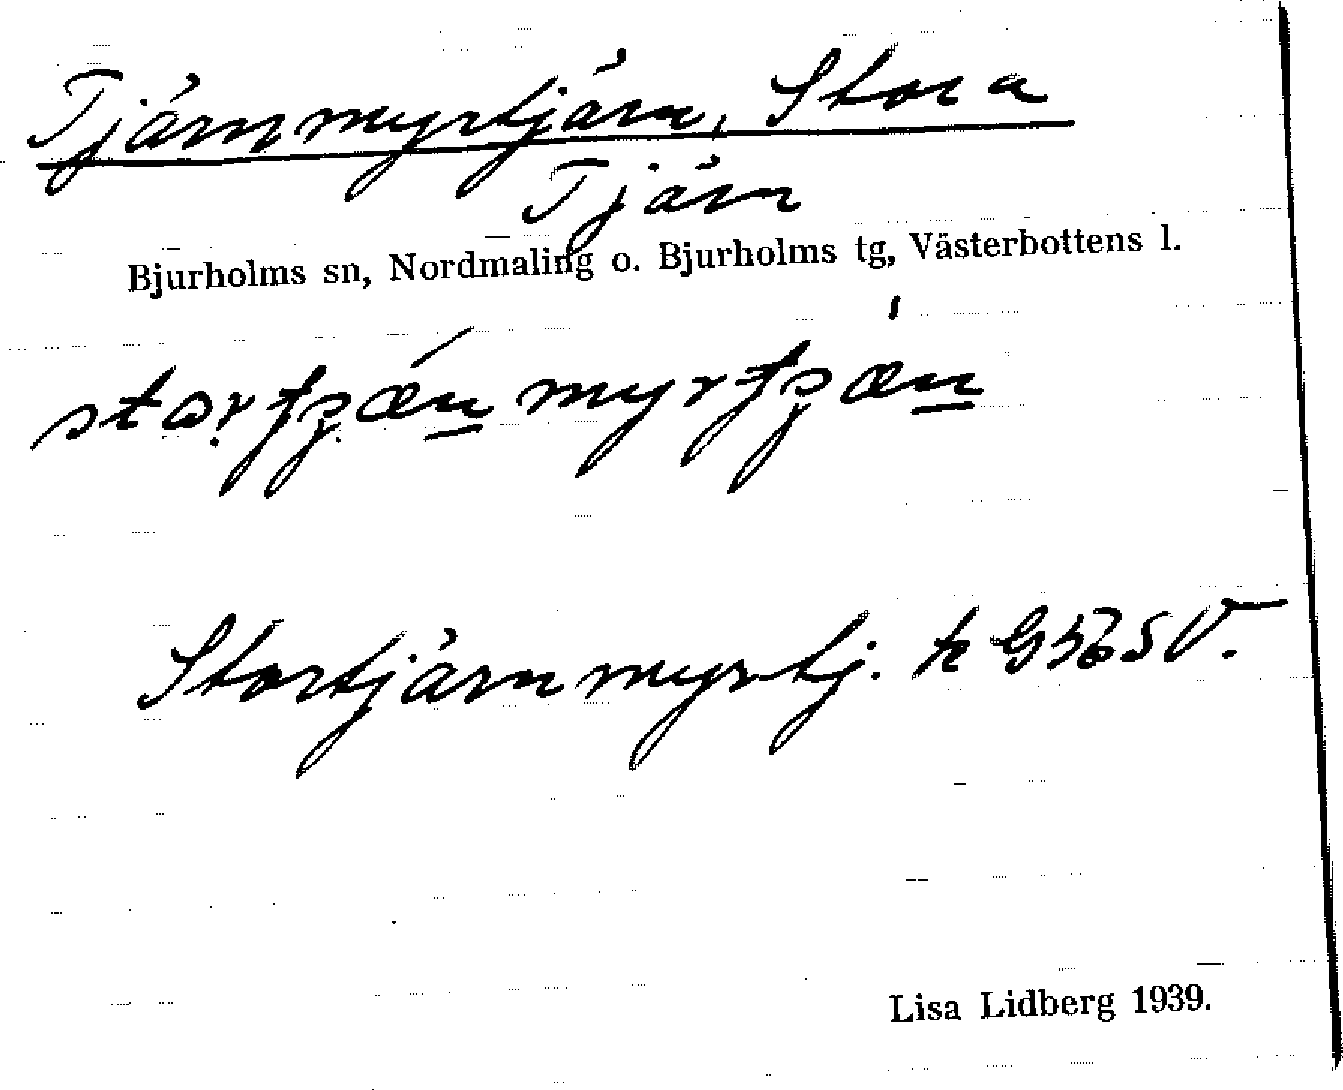 Tjärnmyrtjärn, Stora
Tjärn
Bjurholms sn, Nordmaling o. Bjurholms tg, Västerbottens l.
Stortjärnmyrtj. k G5 SV.
Lisa Lidberg 1939.